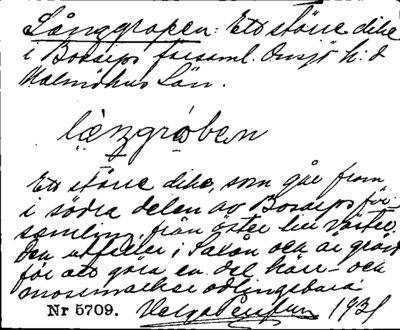 Långgropen: Ett större dike
i Bosarps församl. Onsjö h:d
Malmöhus Län.
långgroben
Ett större dike, som går fram
i södra delen av Bosarps för-
samling, från öster till väster.
Den utfaller i Saxån och är grävd
för att göra en del kärr- och
mossmarker odlingsbara
Nr 5709. 1931